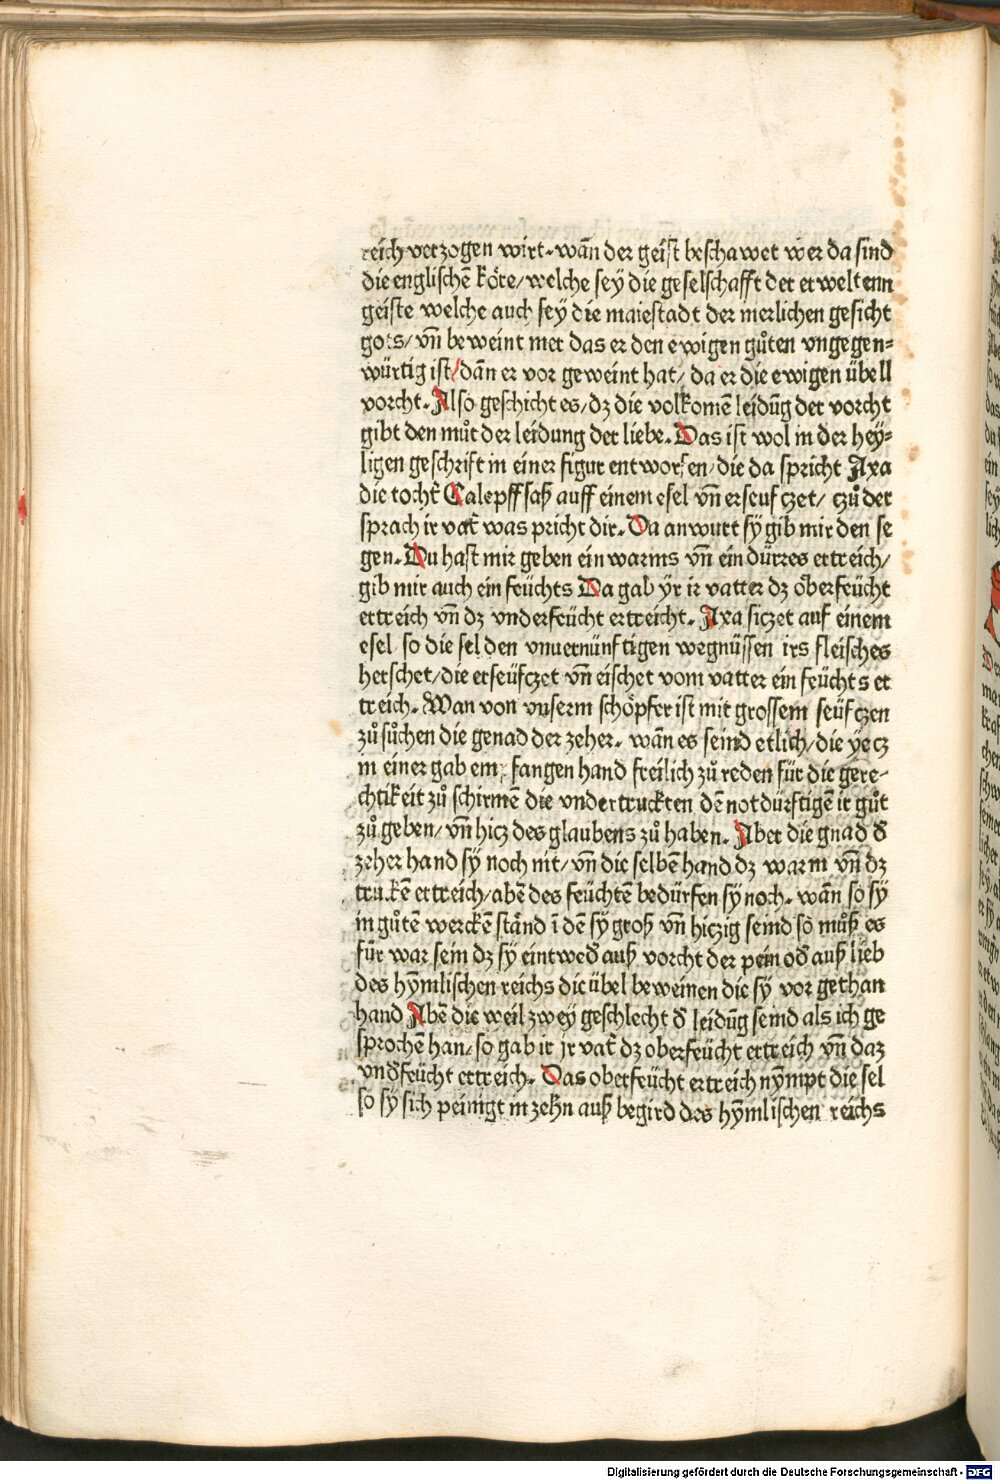 reich verzogen wirt. wañ der geist beschawet wer da sind
die englischē köre/ welche sey die geselschafft der erweltenn
geiste welche auch sey die maiestadt der merlichen gesicht
gots/ vñ beweint mer das er den ewigen gůten vngegen=
würtig ist/ dañ er vor geweint hat/ da er die ewigen übell
vorcht. Also geschicht es/ dz die volkomē leidūg der vorcht
gibt den můt der leidung der liebe. Das ist wol in der hey=
ligen geschrift in einer figur entworfen/ die da spricht Axa
die tocht̃ Calepff saß auff einem esel vñ erseufczet/ czů der
sprach ir vat̃ was pricht dir. Da anwurt sy gib mir den se
gen. Du hast mir geben ein warms vñ ein dürres ertreich/
gib mir auch ein feüchts Da gab ÿr ir vatter dz öberfeücht
ertreich vñ dz vnderfeücht ertreicht. Axa siczet auf einem
esel/ so die sel den vnuernünftigen wegnüssen irs fleisches
herschet/ die erseüfczet vñ eischet vom vatter ein feüchts er
treich. Wan von vnserm schöpfer ist mit grossem seüfczen
zů sůchen die genad der zeher. wañ es seind etlich/ die yecz
in einer gab empfangen hand freilich zů reden für die gere-
chtikeit zů schirmē die vndertruckten dē notdürftigē ir gůt
zů geben/ vñ hicz des glaubens zů haben. Aber die gnad đ
zeher hand sy noch nit/ vñ die selbē hand dz warm vñ dz
truckē ertreich/ abē des feüchtē bedürfen sy noch. wañ so sy
in gůtē werckē ständ ī dē sy groß vñ hiczig seind so můß es
für war sein dz sy eintweđ auß vorcht der pein ođ auß lieb
des hymlischen reichs die übel beweinen die sy vor gethan
hand Abē die weil zwey geschlecht đ leidūg seind als ich ge
sprochē han/ so gab ir jr vat̃ dz oberfeücht ertreich vñ daz
vnđfeücht ertreich. Das oberfeücht ertreich nympt die sel
so sy sich peinigt in zehn auß begird des hymlischen reichs
Digitalisierung gefördert durch die Deutsche Forschungsgemeinschaft - DFG